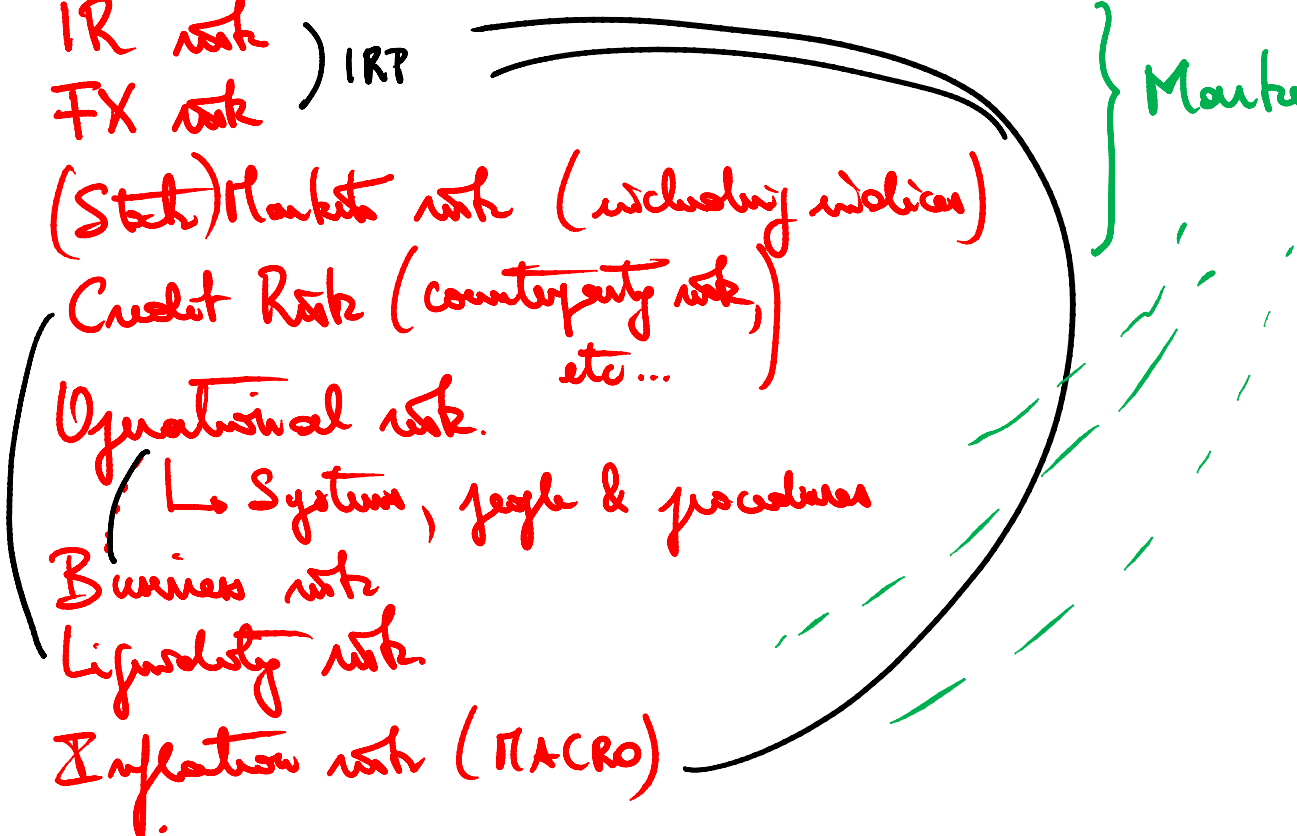 IR risk
IRP
FX risk
(Stock) Markets risk (including indices)
Credit Risk (counterparty risk,
etc...)
Operational risk.
Systems, people & procedures
Business risk
Liquidity risk
Inflation risk (MACRO)